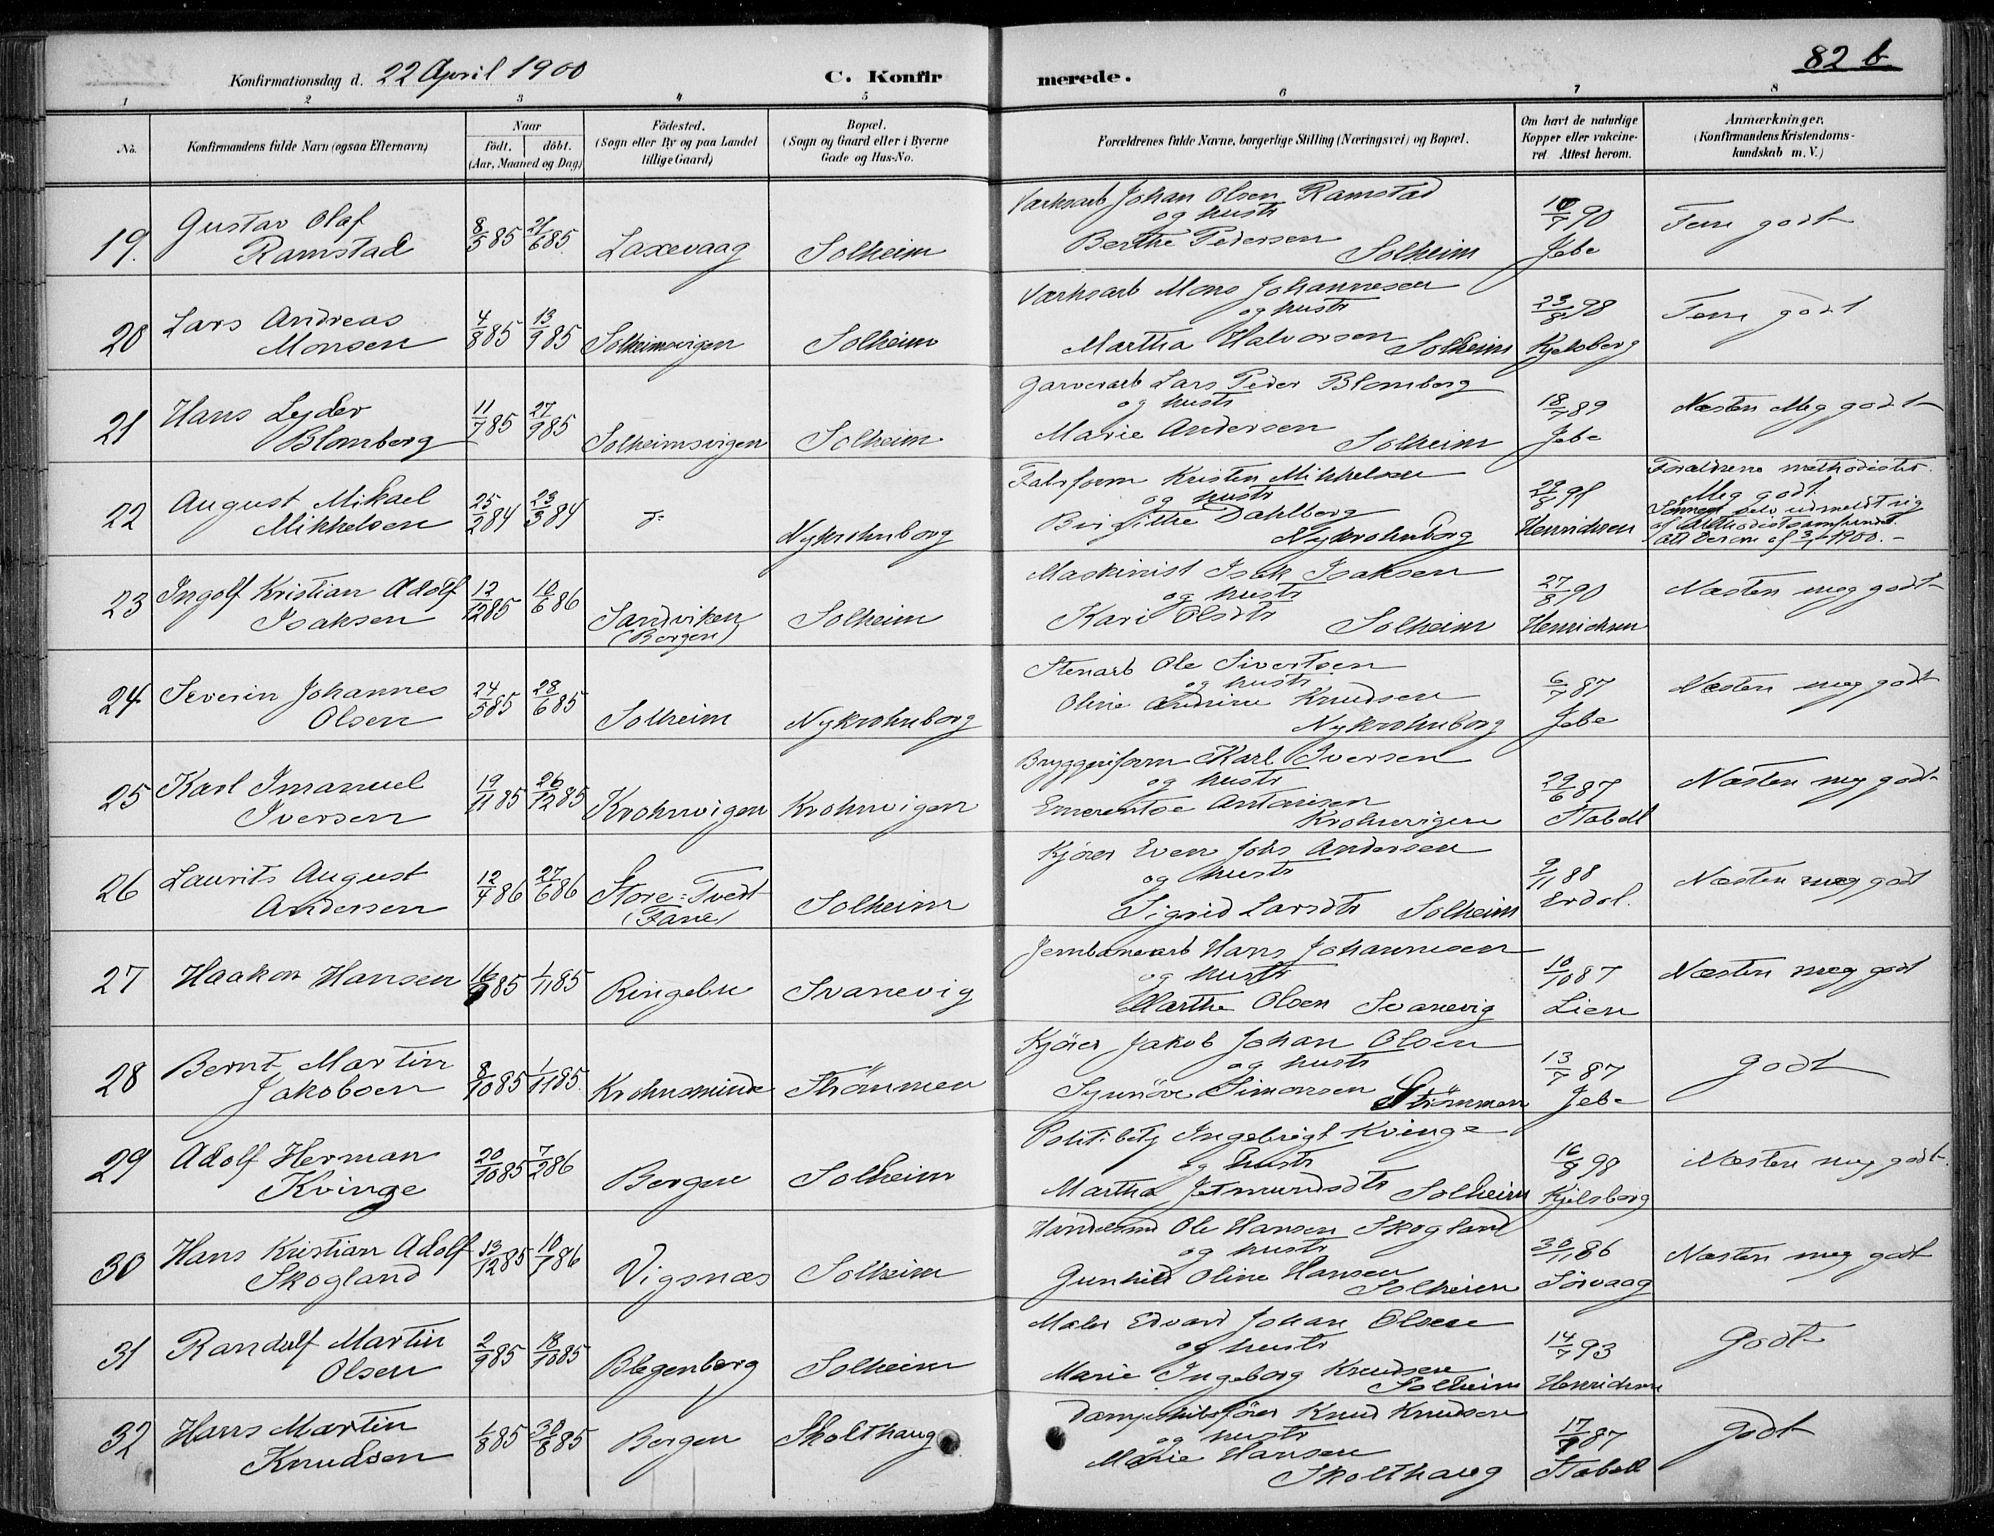 82 b.
Konfirmationsdag d. 22 April 1900 C. Konfirmerede.
1 2 3 4 5 6 7 8
No. Konfirmandens fulde Navn (ogsaa Efternavn) Naar født. døbt. (Aar, Maaned og Dag) Födested. (Sogn eller By og paa Landet tillige Gaard) Bopæl. (Sogn og Gaard eller i Byerne Gade og Hus-No. Forældrenes fulde Navne, borgerlige Stilling (Næringsvei) og Bopæl. Om havt de naturlige Kopper eller vakcineret. Attest herom. Anmærkninger. (Konfirmandens Kristendomskundskab m. V.)
19. Gustav Olaf Ramstad 8/5 85 21/6 85 Laxevaag Solheim Værksarb Johan Olsen Ramstad og hustr Berthe Pedersen Solheim /7 90 Jebe Tem godt
20 Lars Andreas Monsen 4/8 85 13/9 85 Solheimsvigen Solheim Værksarb Mons Johannesen og hustr Martha Halvorsen Solheim 23/8 98 Kjelsberg Tem godt
21 Hans Lyder Blomberg 11/7 85 27/9 85 Solheimsvigen Solheim Garverarb Lars Peder Blomberg og hustr Marie Andersen Solheim 18/7 89 Jebe Næsten Meg godt
22 August Mikael Mikkelsen 25/2 84 23/3 84 Nykrohnborg Kristen Mikkelsen og hustr Dahlberg Nykrohnborg Henrichsen Forældrene methodister. Meg godt. Sønnen selv udmeldt sig af Methodistsamfundet. 1900.
23 Ingolf Kristian Adolf Isaksen 12/12 85 10/6 86 Sandviken (Bergen) Solheim Maskinist Isak Isaksen og hustr Kari Olsdtr Solheim 27/8 90 Henrichsen Næsten meg godt
24 Severin Johannes Olsen 24/5 85 28/6 85 Solheim Nykrohnborg Stenarb Ole Sivertsen og hustr Oline Andrine Knudsen Nykrohnborg 6/7 87 Jebe Næsten meg godt
25 Karl Imanuel Iversen 19/11 85 26/12 85 Krohnvigen Krohnvigen Bryggeriform Karl Iversen og hustr Emerentse Antonisen Krohnvigen 29/6 87 Stabell Næsten meg godt
26 Laurits August Andersen 12/4 86 27/6 86 Store-Tvedt (Fane) Solheim Kjører Even Johs Andersen og hustr Sigrid Larsdtr Solheim 9/11 88 Erdal. Næsten meg godt
27 Haakon Hansen 16/9 85 1/11 85 Ringebu Svanevig Jernbanearb Hans Johannesen og hustr Marthe Olsen Svanevig 10/10 87 Lien Næsten meg godt
28 Bernt Martin Jakobsen 8/10 85 1/11 85. Krohnsminde Strømmen Kjører Jakob Johan Olsen og hustr Synnöve Simonsen Strömmen 13/7 87 Jebe Godt
29 Adolf Herman Kvinge 20/10 85 7/2 86 Bergen Solheim Politibetj Ingebrigt Kvinge og hustr Martha Jetmundsdtr Solheim 16/8 98 Kjelsberg Næsten meg godt.
30 Hans Kristian Adolf Skogland 13/12 85 10/1 86 Vigsnæs Solheim Ole Hansen Skogland og hustr Gunhild Oline Hansen Solheim 30/11 86 Sörvaag Næsten meg godt
31 Randulf Martin Olsen 2/9 85 18/10 85 Blegenberg Solheim Maler Edvard Johan Olsen og hustr Marie Ingeborg Knudsen Solheim 14/7 93 Henrichsen Godt
32 Hans Martin Knudsen 1/8 85 30/8 85 Bergen Skolthaug Dampskibsfører Knud Knudsen og hustr Marie Hansen Skolthaug 17/ 87 Stabell Godt